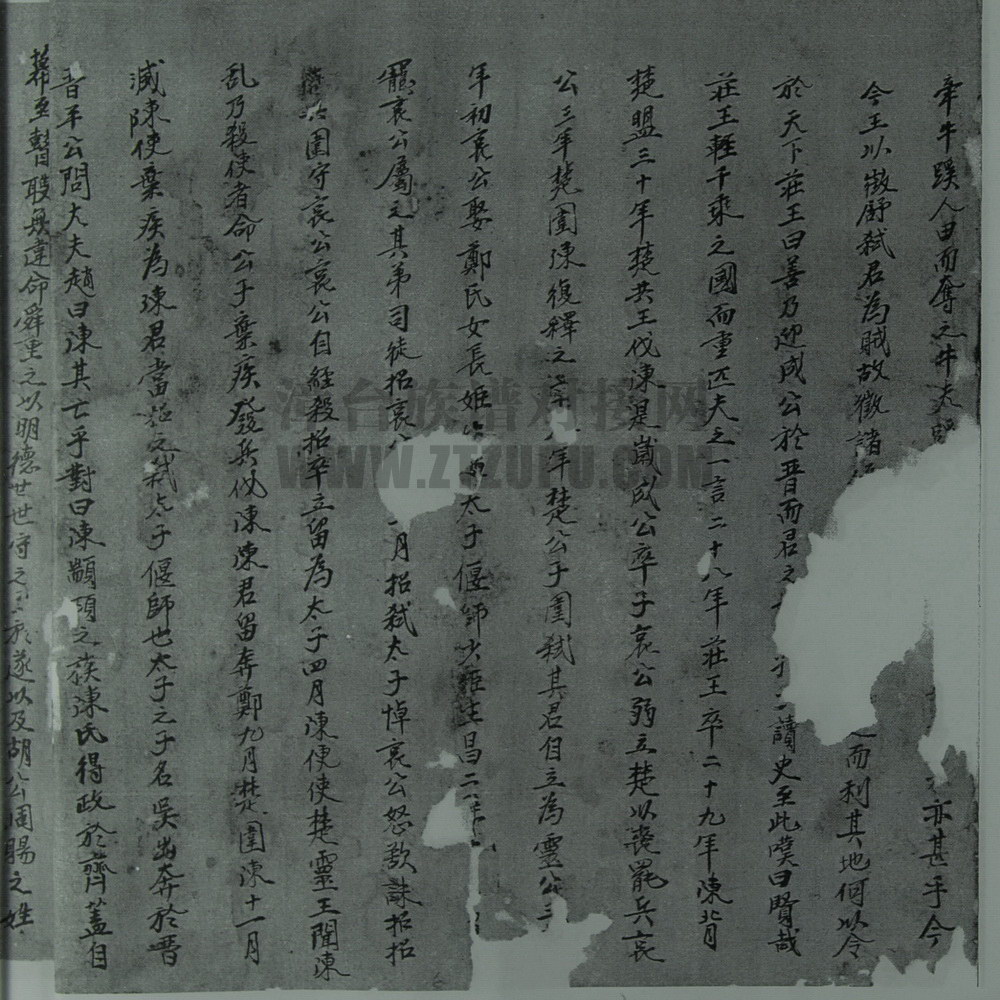 牽牛蹊人田而奪之牛夫 亦甚乎今
今王以徵舒弑君為賊故徵諸 而利其地何以令
於天下莊王曰善乃迎成公於晋而君之 讀史至此嘆曰賢哉
莊王輕千乘之國而重匹夫之一言二十八年莊王卒二十九年陳背
楚盟三十年楚共王伐陳是嵗成公卒子哀公弱立楚以喪罷兵哀
公三年楚圍陳復釋之 年楚公子圍弑其君自立為靈
年初哀公娶鄭氏女長姬 太子偃師少 生昌二
哀公屬之其弟司徒招哀 月招弑太子悼哀公怒欲誅招招
圍守哀公哀公自經殺招卒立留為太子四月陳使使楚靈王聞陳
乱乃殺使者命公子棄疾發兵伐陳陳君留奔鄭九月楚圍陳十一月
滅陳使棄疾為陳君當 之弑太子偃師也太子之子名吳出奔於晋
晋平公問大夫趙曰陳其亡乎對曰陳顓頊之族陳氏得政於齊蓋自
幕至瞽瞍無違命舜重之以明德世世守之 遂以及胡公周賜之姓
河台族谱对接网
WWW.ZTZUPU.COM